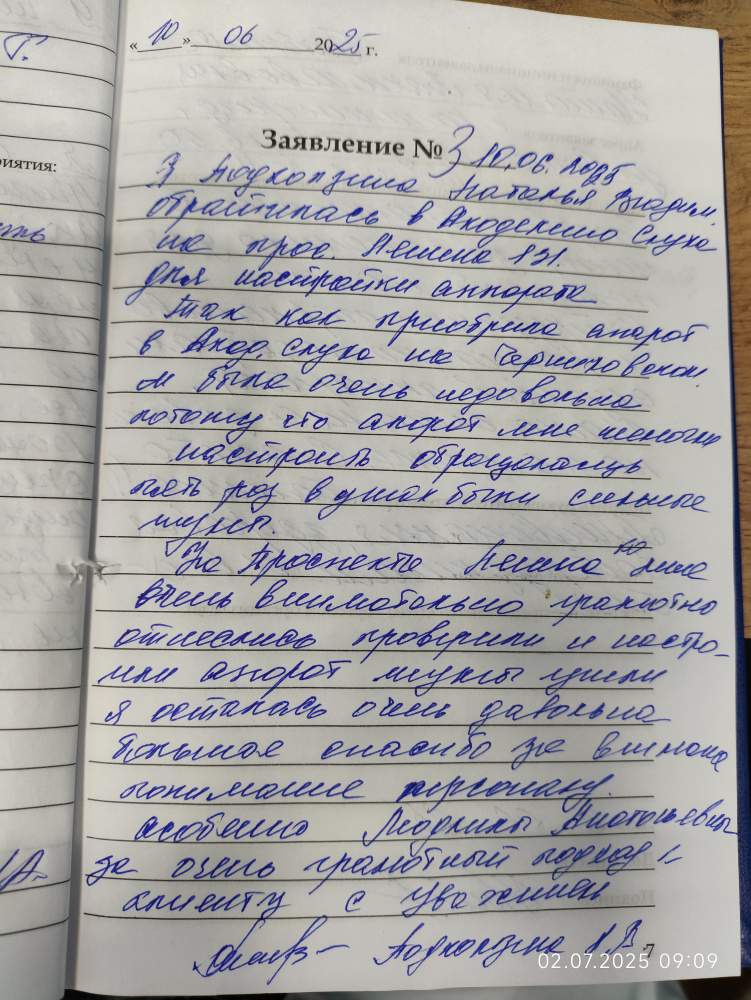 Г.
риятия:
ть
«10» 06 2025 г.
Заявление № 3 10.06.2025
Я Подколзина Наталья Владим.
обратилась в Академию Слуха
на прос. Ленина 131.
для настройки аппората
Так как приобрила апорат
в Акад. слуха на Черняховском
и была очень недовольна
потому что апорат мне не могли
настроить обращалась
пять роз в ушах были сильные
шумы.
На Проспекте Ленина мне
очень внимательно грамотно
отнеслись проверили и настро-
или апорат шумы ушли
я осталась очень давольна
большое спасибо за внимание
понимание персоналу.
особенно Людмилы Анатольевны
за очень грамотный подход к
клиенту с уважением
Подколзина Н.В.
7
02.07.2025 09:09